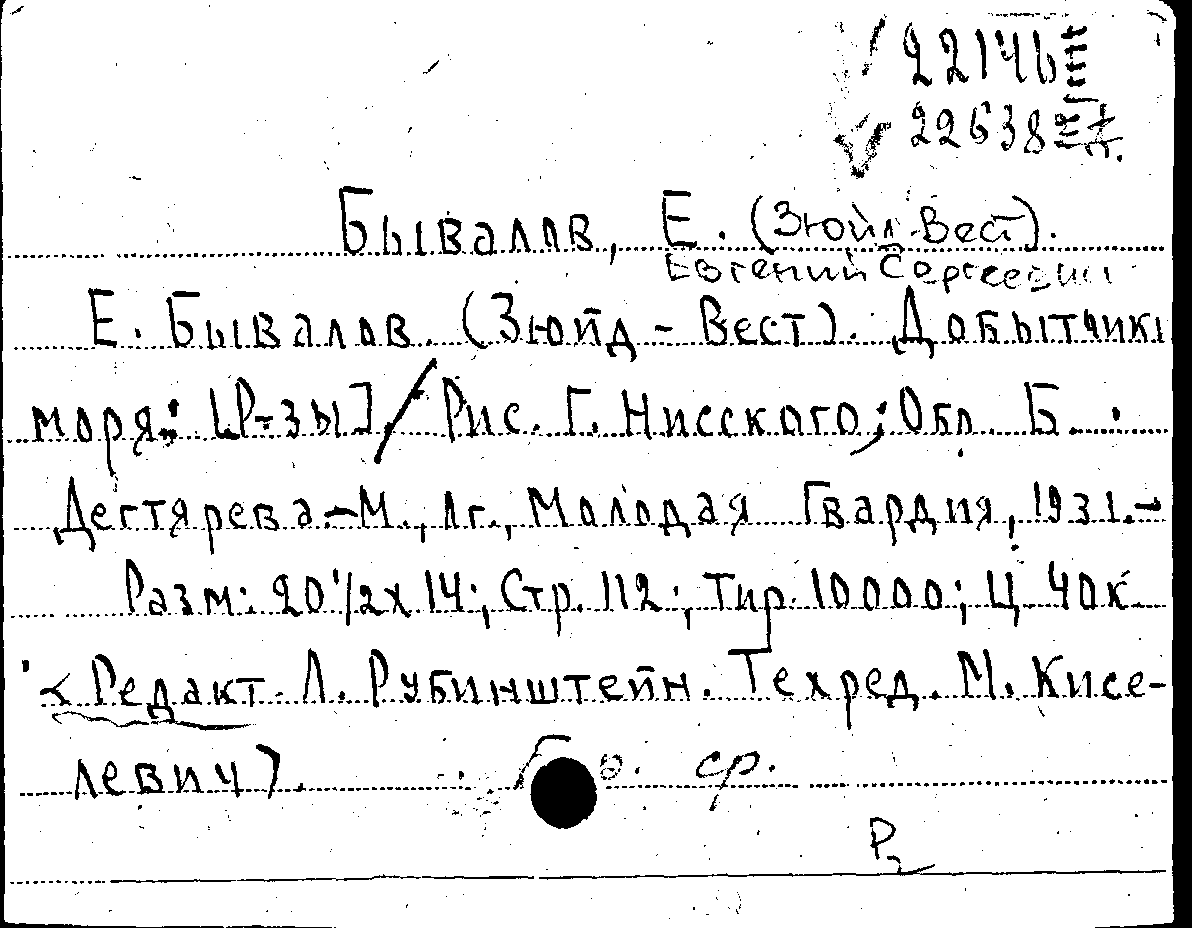 22146
22638
Бывалов, Е. (Зюйд-Вест).
Евгений Сергеевич
Е. Бывалов. (Зюйд-Вест). Добытчики
моря: [Р-зы] / Рис. Г. Нисского; Обл. Б.
Дегтярева.–М., Лг., Молодая Гвардия, 1931.–
Разм: 20 1/2 х 14; Стр. 112; Тир. 10000; Ц. 40к
< Редакт. Л. Рубинштейн. Техред. М. Кисе-
левич).
ср.